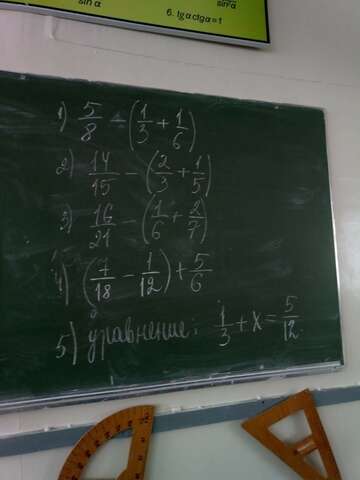 sin α
sin²α
6. tgα ctgα = 1
1) 5/8 - (1/3 + 1/6)
2) 14/15 - (2/3 + 1/5)
3) 16/21 - (1/6 + 2/7)
4) (7/18 - 1/12) + 5/6
5) уравнение: 1/3 + x = 5/12.